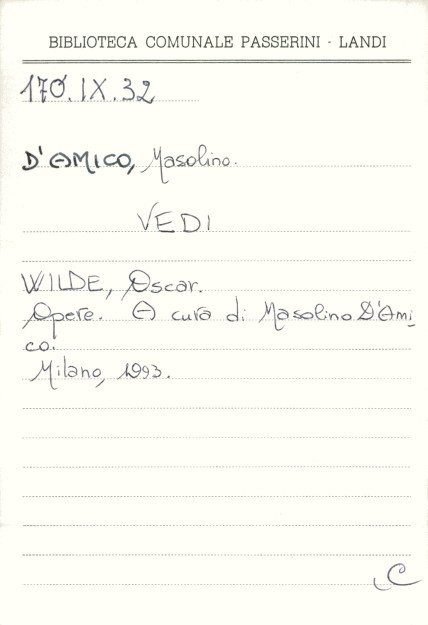 BIBLIOTECA COMUNALE PASSERINI - LANDI
170.IX.32
D'AMICO, Masolino.
VEDI
WILDE, Oscar.
Opere. A cura di Masolino D'Ami_
co.
Milano, 1993.
C